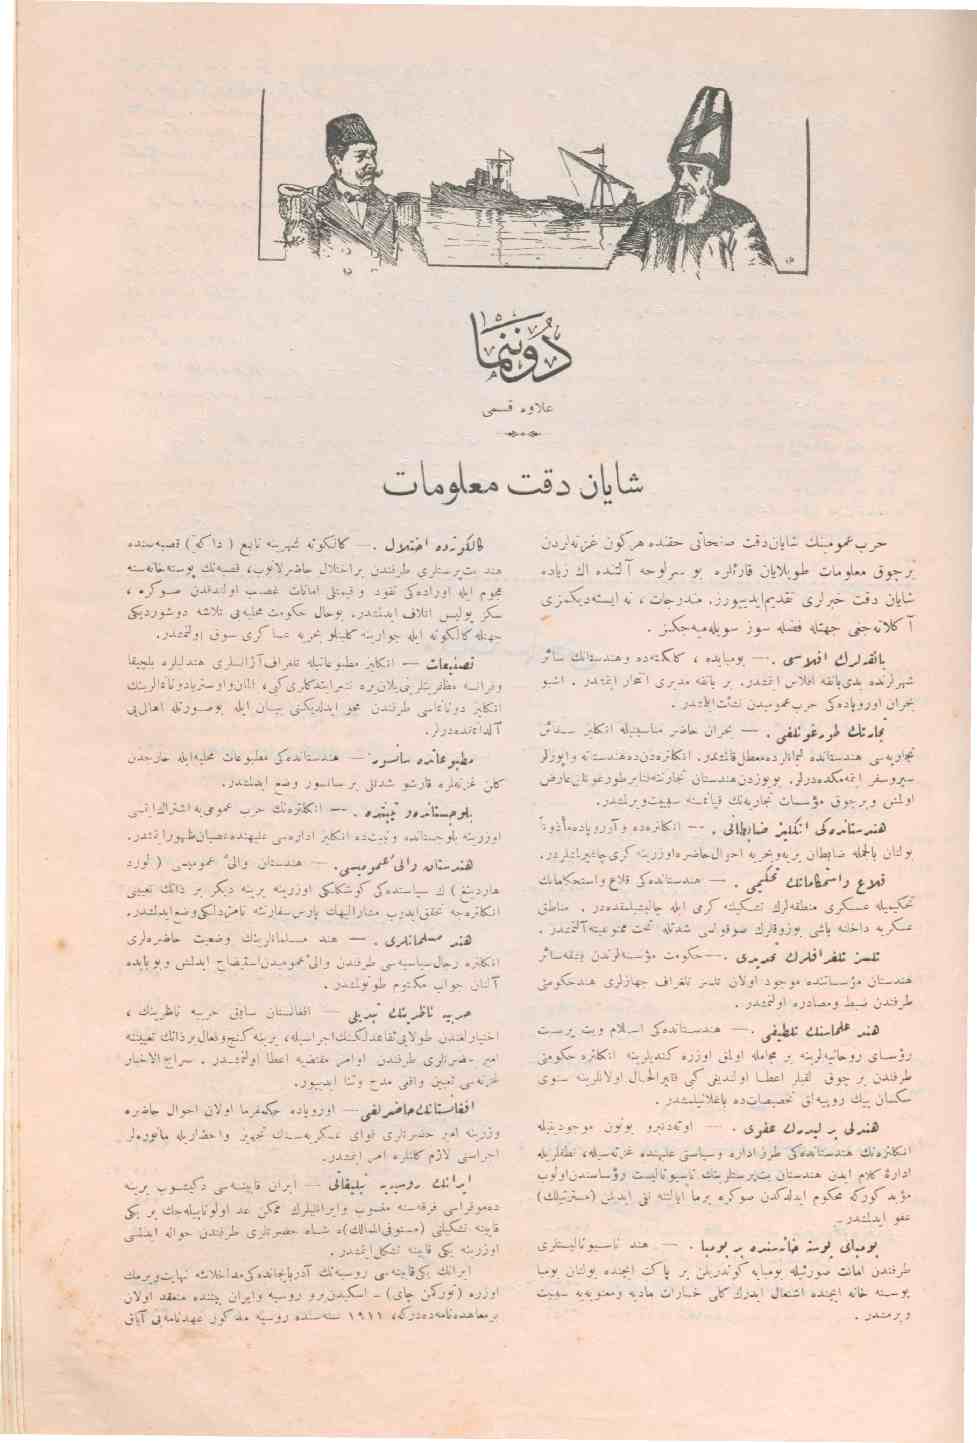 دوننما
علاوه قسمی
شایان دقت معلومات
حرب عمومینك شایان دقت صفحاتی حقنده هركون غزته‌لردن
برچوق معلومات طوپلایان قارئلره بو سرلوحه آلتنده اك زیاده
شایان دقت خبرلری تقدیم ایدییورز. مندرجات ، نه ایسته‌دیكمزی
آكلاته‌جغی جهتله فضله سوز سویله‌میه‌جكز .
بانقه‌لرك افلاسی . — بومبایده ، كلكته‌ده وهندستانك سائر
شهرلرنده یدی بانقه افلاس ایتمشدر. بر بانقه مدیری انتحار ایتمشدر . اشبو
بحران اوروپاده‌كی حرب عمومیدن نشئت ایتمشدر .
تجارتك طورغونلغی . — بحران حاضر مناسبتیله انكلیز
اولمش وبرچوق مؤسسات تجاریه‌نك قپانمسنه سببیت ویرمشدر.
هندستانده‌كی انكلیز ضابطانی . — انكلتره‌ده و آوروپاده مأذوناً
بولنان بالجمله ضابطان بریه وبحریه احوال حاضره اوزرینه كری چاغیرلمشلردر.
قلاع واستحكاماتك تحكیمی . — هندستانده‌كی قلاع واستحكاماتك
تحكیمیله عسكری منطقه‌لرك تشكیلنه كرمی ایله چالیشیلمقده‌در . مناطق
عسكریه داخلنه یاشی بوزوقلرك صوقولمسی شدتله تحت ممنوعیته آلنمشدر .
تلسز تلغرافلرك تحدیدی . — حكومت مؤسسه‌لرندن بشقه سائر
هندستان مؤسساتنده موجود اولان تلسز تلغراف جهازلری هند حكومتی
طرفندن ضبط ومصادره اولنمشدر .
هند علماسنك تلطیفی . — هندستانده‌كی اسلام وبت پرست
رؤسای روحانیه‌لرینه بر مجامله اولمق اوزره كندیلرینه انكلتره حكومتی
طرفندن بر چوق لقبلر اعطا اولندیغی كبی فقیرالحال اولانلرینه سنوی
سكسان بیك روپیه‌لق تخصیصات‌ده باغلانیلمشدر .
هندلی بر لیدرك عفوی . — اوته‌دنبرو بوتون موجودیتیله
انكلتره‌نك هندستانده‌كی طرز اداره وسیاستی علیهنده غزته‌سیله، نطقلریله
ادارۀ كلام ایدن هندستان بت‌پرستلرینك ناسیونالیست رؤساسندن اولوب
مؤبد كوركه محكوم ایدلدكدن صوكره برما ایالتنه نفی ایدیلن (مسترتیلك)
عفو ایدلمشدر .
بومبای پوسته خانه‌سنده بر بومبا . — هند ناسیونالیستلری
طرفندن امانت صورتیله بومبایه كوندریلن بر پاكت ایچنده بولنان بومبا
پوسته خانه ایچنده اشتعال ایدرك كلی خسارات مادیه ومعنویه‌یه سببیت
ویرمشدر .
كالكوته‌ده اختلال . — كالكوته شهرینه تابع ( داكه ) قصبه‌سنده
هند بت‌پرستلری طرفندن بر اختلال حاضرلانوب، قصبه‌نك پوسته‌خانه‌سنه
هجوم ایله اوراده‌كی نقود و قیمتلی امانات غصب اولندقدن صوكره ،
سكز پولیس اتلاف ایدلمشدر. بو حال حكومت محلیه‌یی تلاشه دوشوردیكی
جهتله كالكوته ایله جوارینه كلیتلو بحریه عساكری سوق اولنمشدر.
تصنیعات — انكلیز مطبوعاتیله تلغراف آژانسلری هندلیلره بلچیقا
وفرانسه مظفریتلرینی یلان یره نشر ایتدكلری كبی، المان واوستریا دونانمالرینك
انكلیز دونانماسی طرفندن محو ایدلدیكنی بیان ایله بوصورتله اهالی‌یی
آلداتمقده‌درلر.
مطبوعاتده سانسور — هندستانده‌كی مطبوعات محلیه ایله خارجدن
كلن غزته‌لره قارشو شدتلی بر سانسور وضع ایدلمشدر.
بلوچستانده و تبتده . — انكلتره‌نك حرب عمومی‌یه اشتراك ایتمسی
اوزرینه بلوچستانده وتبت‌ده انكلیز اداره‌سی علیهنده عصیان ظهور ایتمشدر.
هندستان والیٔ عمومیسی . — هندستان والیٔ عمومیسی ( لورد
هاردینغ ) ك سیاستده‌كی كوشكلكی اوزرینه یرینه دیكر بر ذاتك تعیینی
انكلتره‌جه تحقق ایدوب مشارالیهك پارس سفارتنه نامزدلكی وضع ایدلمشدر.
هند مسلمانلری . — هند مسلمانلرینك وضعیت حاضره‌لری
انكلتره رجال سیاسیه‌سی طرفندن والیٔ عمومیدن استیضاح ایدلمش وبوبابده
آلنان جواب مكتوم طوتولمشدر .
حربیه ناظرینك تبدیلی — افغانستان سابق حربیه ناظرینك ،
اختیارلغندن طولایی تقاعدلكنك اجراسیله، یرینه كنج وفعال بر ذاتك تعییننه
امیر حضرتلری طرفندن اوامر مقتضیه اعطا اولنمشدر . سراج الاخبار
غزته‌سی تعیین واقعی مدح وثنا ایدییور.
افغانستانك حاضرلغی — اوروپاده حكمفرما اولان احوال حاضره
وزرینه امیر حضرتلری قوای عسكریه‌سنك تجهیز واحضاریله مانوره‌لر
اجراسی لازم كلنلره امر ایتمشدر.
ایرانك روسیه‌یه تبلیغاتی — ایران قابینه‌سی دكیشوب یرینه
ده‌موقراسی فرقه‌سنه منسوب وایرانلیلرك ممكن عد اولونابیله‌جك بر یكی
قابینه تشكیلی (مستوفی الممالك)ه شاه حضرتلری طرفندن حواله ایدلمسی
اوزرینه یكی قابینه تشكل ایتمشدر.
ایرانك یكی قابینه‌سی روسیه‌نك آذربایجانده‌كی مداخلاتنه نهایت ویرمك
اوزره (توركمن چای) – اسكیدنبرو روسیه وایران بیننده منعقد اولان
بر معاهده‌نامه‌ده‌دركه، ١٩١١ سنه‌سنده روسیه مذكور عهدنامه‌یی آیاق